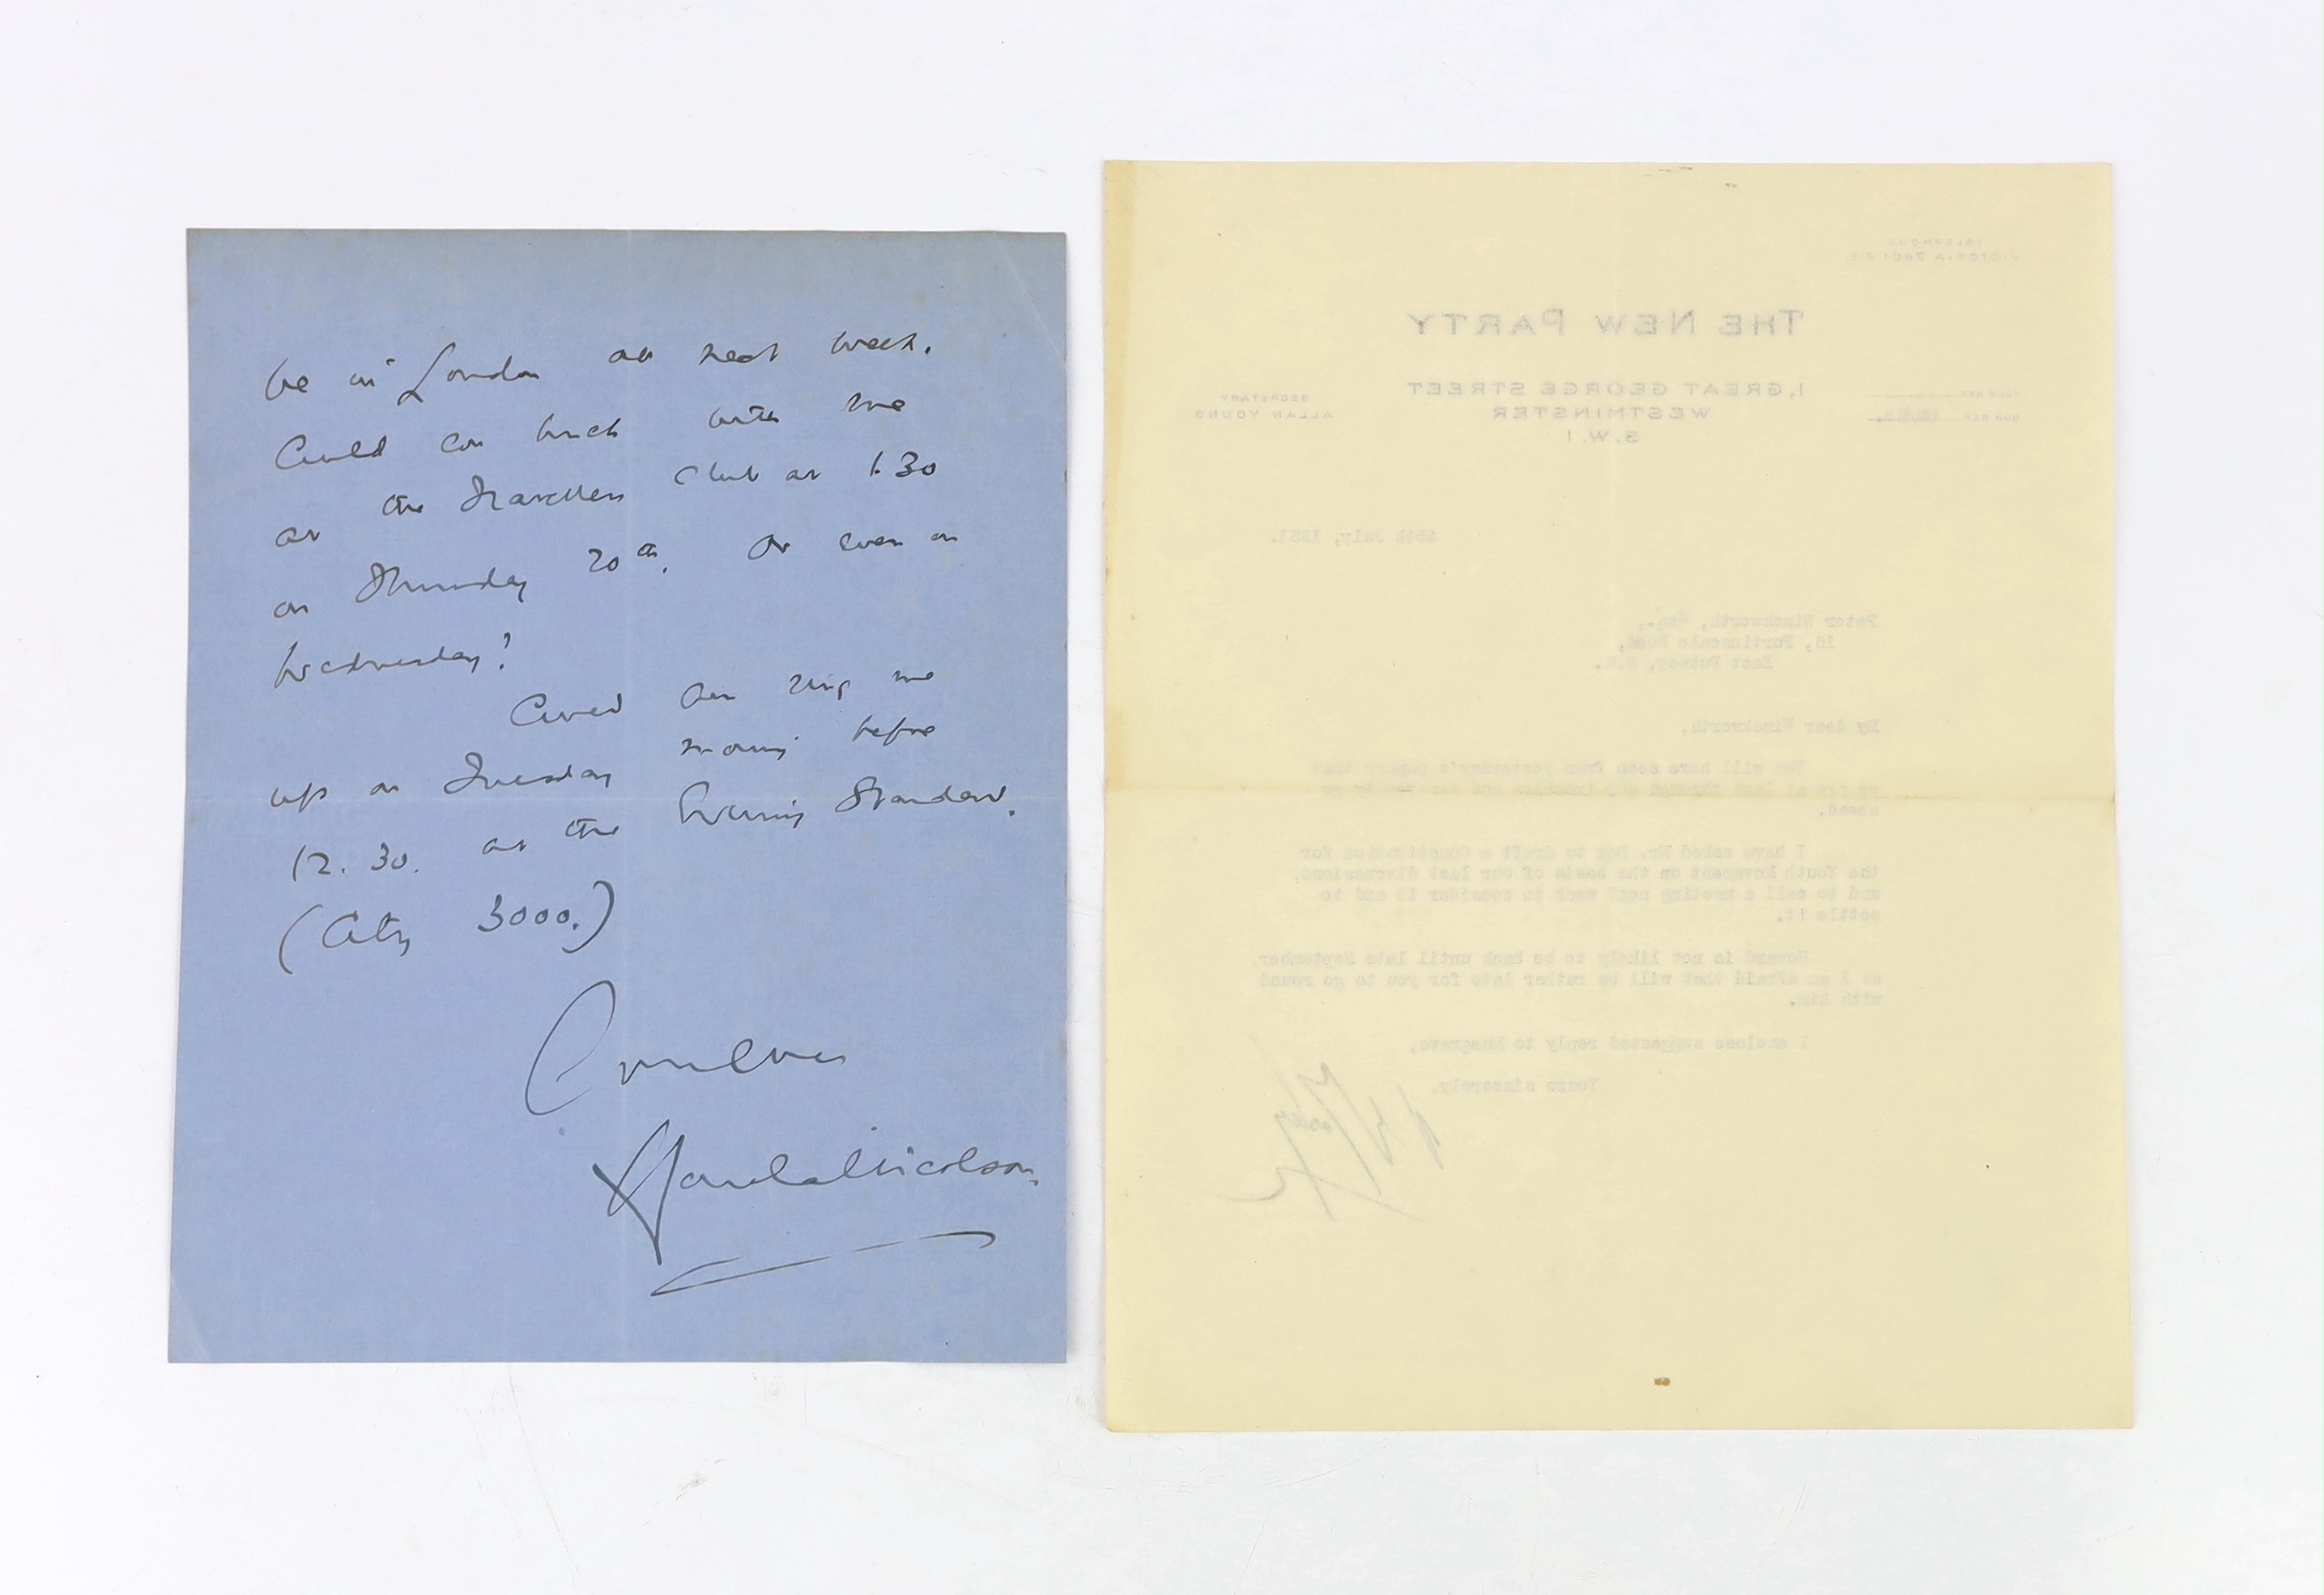 be in London all next week.
Could you lunch with me
at the Travellers Club at 1.30
on Thursday 20th. Or even on
Wednesday?
Could you ring me
up on Tuesday morning before
12.30. at the Evening Standard.
(City 3000.)
Harold Nicolson.
TELEPHONE
VICTORIA
THE NEW PARTY
1, GREAT GEORGE STREET
WESTMINSTER
S.W.1
YOUR REF
OUR REF
SECRETARY
ALLAN YOUNG
July, 1931.
Peter Winckworth, Esq.,
16, Portinscale Road,
East Putney, S.W.
My dear Winckworth,
You will have seen from yesterday's papers that
we are at last through our troubles and can go
ahead.
I have asked Mr. to draft a Constitution for
the Youth Movement on the basis of our last discussions,
and to call a meeting next week to consider it and to
settle it.
Howard is not likely to be back until late September,
so I am afraid that will be rather late for you to go round
with him.
I enclose suggested reply to Musgrave,
Yours sincerely,